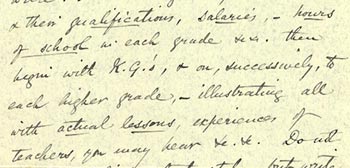 & their qualifications, salaries, – hours
of school in each grade &c. then
begin with K.G.'s, & on, successively, to
each higher grade, – illustrating all
with actual lessons, experiences of
teachers, you may hear &c. &c. Do not